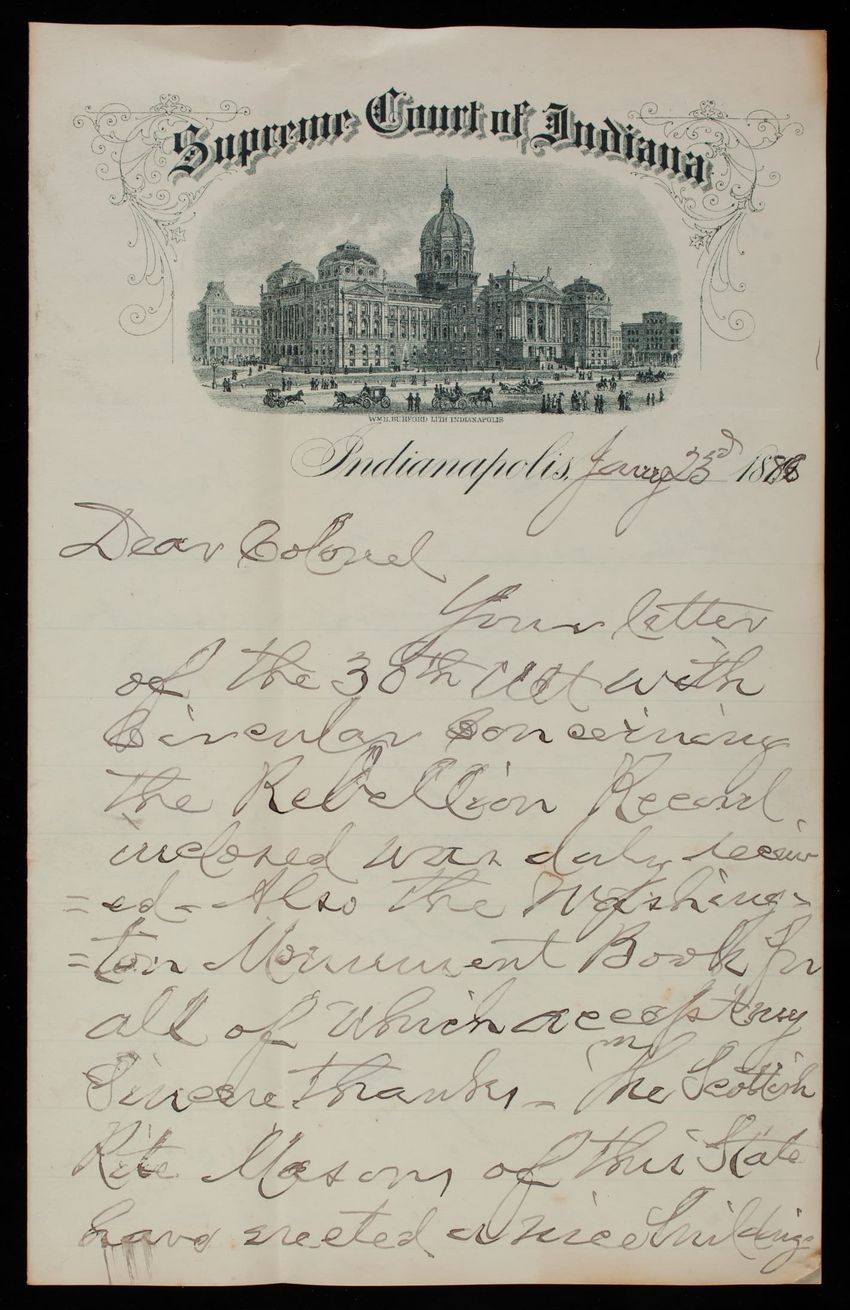 Supreme Court of Indiana
WM. B. BURFORD LITH INDIANAPOLIS
Indianapolis, Jany 23d 1888
Dear Colonel
Your letter
of the 30th Ult with
Circular Concerning
the Rebellion Record
inclosed was duly receiv
=ed - Also the Washing=
=ton Monument Book for
all of which accept my
Sincere thanks - The Scottish
Rite Masons of this State
have erected a nice building